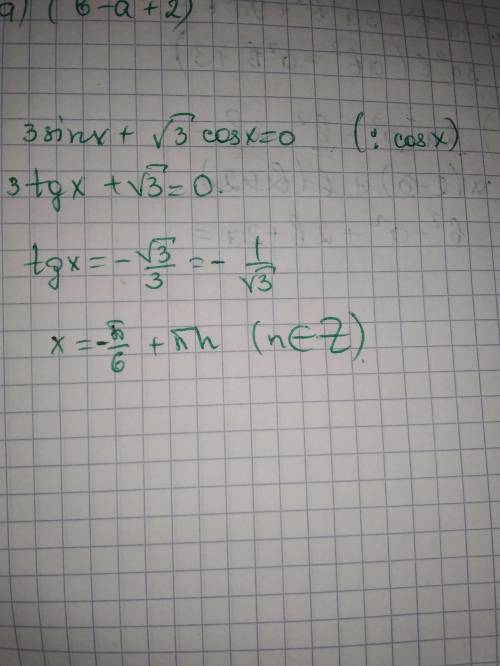 а) (в-а+2)
3sinx + √3 cosx=0 (: cosx)
3 tgx + √3 = 0.
tgx = -√3/3 = - 1/√3
x = -π/6 + πn (n∈Z).